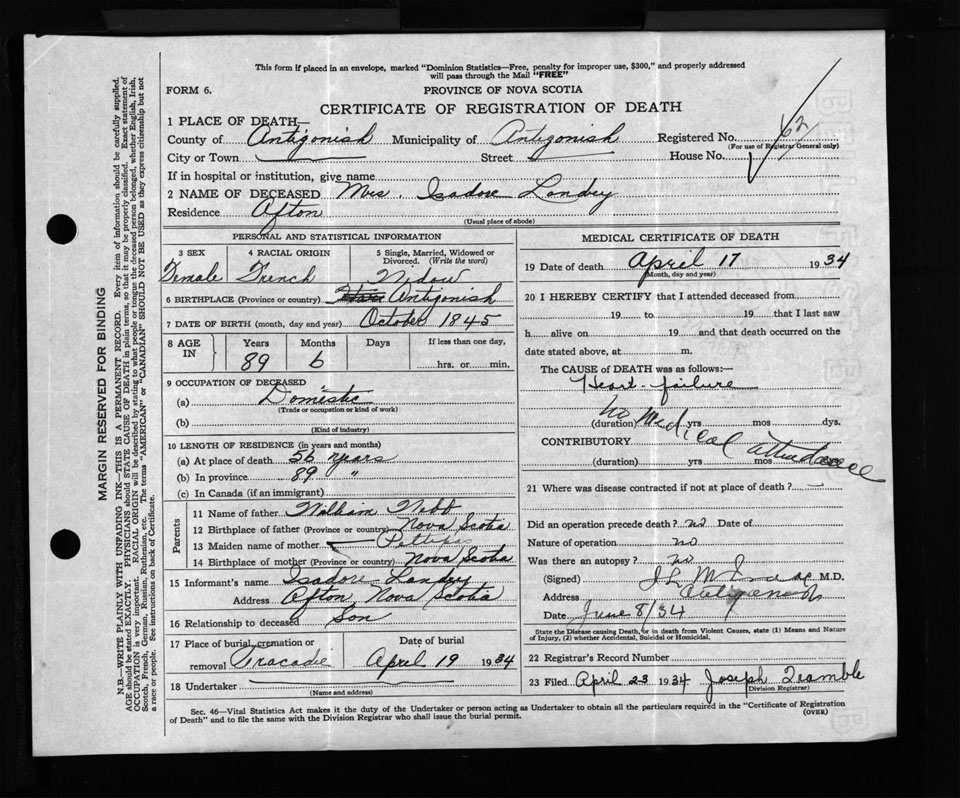 This form if placed in an envelope, marked "Dominion Statistics—Free, penalty for improper use, $300," and properly addressed
will pass through the Mail "FREE"
FORM 6.
PROVINCE OF NOVA SCOTIA
CERTIFICATE OF REGISTRATION OF DEATH
1 PLACE OF DEATH—
County of Antigonish Municipality of Antigonish Registered No. 62
(For use of Registrar General only)
City or Town Street House No.
If in hospital or institution, give name
2 NAME OF DECEASED Mrs. Isadore Landry
Residence Afton
(Usual place of abode)
PERSONAL AND STATISTICAL INFORMATION
3 SEX 4 RACIAL ORIGIN 5 Single, Married, Widowed or
Divorced. (Write the word)
Female French Widow
6 BIRTHPLACE (Province or country) Antigonish
7 DATE OF BIRTH (month, day and year) October 1845
8 AGE IN Years Months Days If less than one day,
89 6 hrs. or min.
9 OCCUPATION OF DECEASED
(a) Domestic
(Trade or occupation or kind of work)
(b)
(Kind of industry)
10 LENGTH OF RESIDENCE (in years and months)
(a) At place of death 56 years
(b) In province 89 "
(c) In Canada (if an immigrant)
Parents
11 Name of father William
12 Birthplace of father (Province or country) Nova Scotia
13 Maiden name of mother Pettipas
14 Birthplace of mother (Province or country) Nova Scotia
15 Informant's name Isadore Landry
Address Afton, Nova Scotia
16 Relationship to deceased Son
17 Place of burial, cremation or Date of burial
removal Tracadie April 19 1934
18 Undertaker
(Name and address)
MEDICAL CERTIFICATE OF DEATH
19 Date of death April 17 1934
(Month, day and year)
20 I HEREBY CERTIFY that I attended deceased from
19 to 19 that I last saw
h alive on 19 and that death occurred on the
date stated above, at m.
The CAUSE of DEATH was as follows:—
Heart failure
(duration) yrs mos dys.
no Medical attendance
CONTRIBUTORY
(duration) yrs mos
21 Where was disease contracted if not at place of death? —
Did an operation precede death? no Date of
Nature of operation no
Was there an autopsy? no
(Signed) M.D.
Address Antigonish
Date June 8/34
State the Disease causing Death, or in death from Violent Causes, state (1) Means and Nature
of Injury, (2) whether Accidental, Suicidal or Homicidal.
22 Registrar's Record Number
23 Filed April 23 1934 Joseph Tramble
Division Registrar
Sec. 46—Vital Statistics Act makes it the duty of the Undertaker or person acting as Undertaker to obtain all the particulars required in the "Certificate of Registration
of Death" and to file the same with the Division Registrar who shall issue the burial permit.
(OVER)
MARGIN RESERVED FOR BINDING
N.B—WRITE PLAINLY WITH UNFADING INK—THIS IS A PERMANENT RECORD. Every item of information should be carefully supplied.
AGE should be stated EXACTLY. PHYSICIANS should STATE CAUSE OF DEATH in plain terms, so that it may be properly classified. Exact statement of
OCCUPATION is very important. RACIAL ORIGIN will be described by stating to what people or tongue the deceased person belonged, whether English, Irish,
Scotch, French, German, Russian, Ruthenian, etc. The terms "AMERICAN" or "CANADIAN" SHOULD NOT BE USED as they express citizenship but not
a race or people. See instructions on back of Certificate.